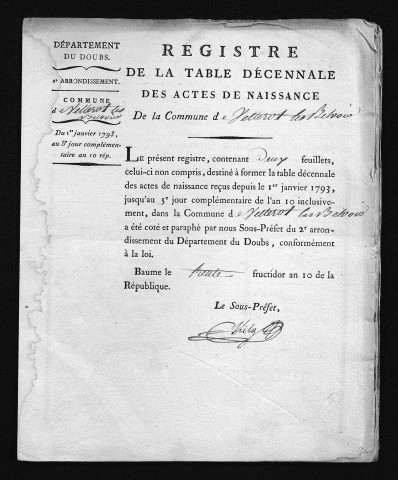 DÉPARTEMENT
DU DOUBS.
2e ARRONDISSEMENT.
COMMUNE
d Vellerot les
Belvoir
Du 1er janvier 1793,
au 5e jour complémen-
taire an 10 rép.
REGISTRE
DE LA TABLE DÉCENNALE
DES ACTES DE NAISSANCE
De la Commune de Vellerot les Belvoir
LE présent registre, contenant deux feuillets,
celui-ci non compris, destiné à former la table décennale
des actes de naissance reçus depuis le 1er janvier 1793,
jusqu'au 5e jour complémentaire de l'an 10 inclusive-
ment, dans la Commune de Vellerot les Belvoir
a été coté et paraphé par nous Sous-Préfet du 2e arron-
dissement du Département du Doubs, conformément
à la loi.
Baume le trente fructidor an 10 de la
République.
Le Sous-Préfet,